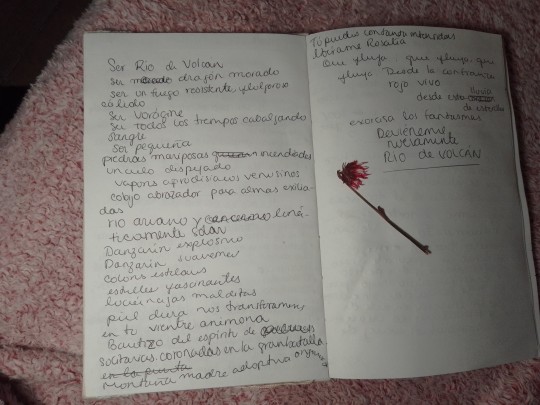 Ser Rio de Volcan
ser dragón morado
ser un fuego resistente y vulporoso
cálido
Ser vorágine
Ser todos los tiempos cabalgando
sangre
Ser pequeña
piedras mariposas incendiadas
un cielo despejado
vapors afrodisiacos venusinos
cobijo abrazador para almas exilia-
das
rio ariano y canceriano luná-
ticamente solar
Danzarín explosivo
Danzarin suavemen
colores estelares
estelas fascinantes
locuinajas malditas
piel dura nos transformamos
en tu vientre anemona
Bautizo del espíritu de
solitarias coronadas en la gran batalla
en la punta
Montaña madre adoptiva
Tú puedes con tanto
librame Rosalia
Que fluya, que fluya, que
fluya Desde la confianza
rojo vivo
desde esta lluvia
de estrellas
exorosa los fantasmas
Devienenme
nuevamente
RIO de VOLCAN